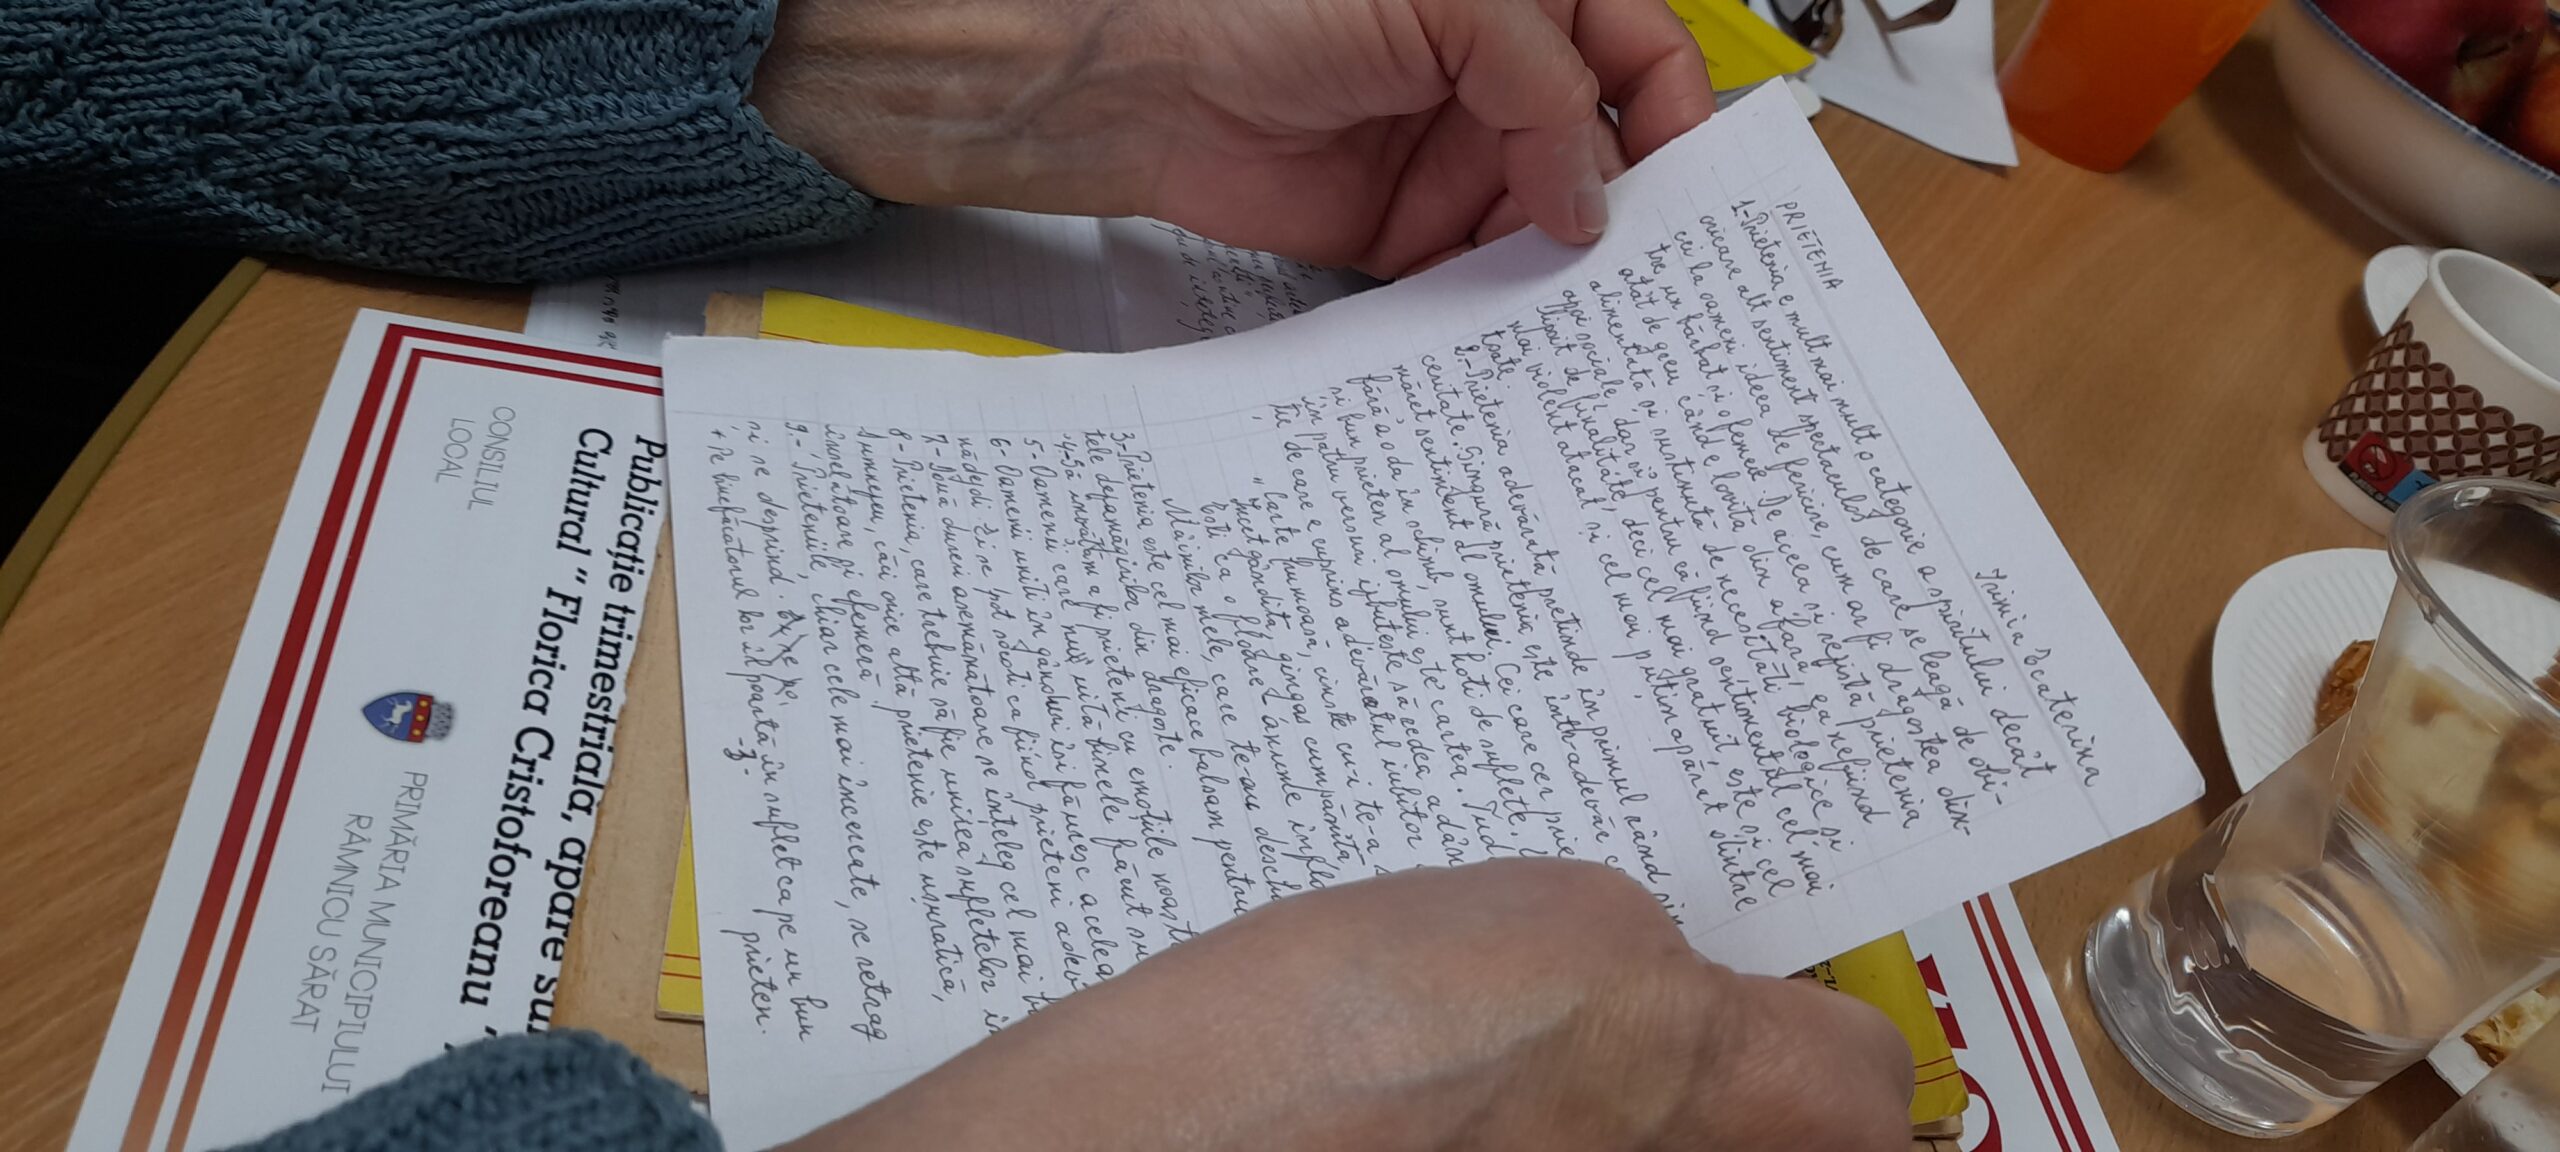 Irimia Ecaterina
PRIETENIA
1.-Prietenia e mult mai mult o categorie a spiritului decât
oricare alt sentiment spectaculos de care se leagă de obi-
cei la oameni ideea de fericire, cum ar fi dragostea din-
tre un bărbat și o femeie. De aceea și rezistă prietenia
atât de greu când e lovită din afară, ea nefiind
alimentată și susținută de necesități biologice și
apoi sociale, dar și pentru că fiind sentimentul cel mai
lipsit de finalitate, deci cel mai gratuit, este și cel
mai violent atacat și cel mai puțin apărat dintre
toate.
2.-Prietenia adevărată pretinde în primul rând sin
ceritate. Singură prietenia este într-adevăr c
măreț sentiment al omului. Cei care cer prie
fără a o da în schimb, sunt hoți de suflete.
și bun prieten al omului este cartea. Tud
în patru versuri izbutește să redea adân
tii de care e cuprins adevăratul iubitor
„Carte frumoasă, cinste cui te-a s
Încet gândită, gingaș cumpănită
Ești ca o floare, anume înflo
Mâinilor mele, care te-au desch
3-Prietenia este cel mai eficace balsam pentru
tele dezamăgirilor din dragoste.
4-Să învățăm a fi prieteni cu emoțiile noast
5-Oamenii care nu uită binele făcut su
6-Oamenii uniți în gânduri își făuresc aceleaș
nădejdi și se pot socoti ca fiind prieteni adevă
7-Două dureri asemănătoare se înțeleg cel mai b
8-Prietenia, care trebuie să fie unirea sufletelor în
Dumnezeu, căci orice altă prietenie este usuratică,
înșelătoare și efemeră.
9.-Prieteniile, chiar cele mai încercate, se retrag
și se desprind.
+Pe binefăcătorul lor îl poartă în suflet ca pe un bun
prieten.
-3-
Publicație trimestrială, apare su
Cultural "Florica Cristoforeanu"
CONSILIUL
LOCAL
PRIMĂRIA MUNICIPIULUI
RÂMNICU SĂRAT